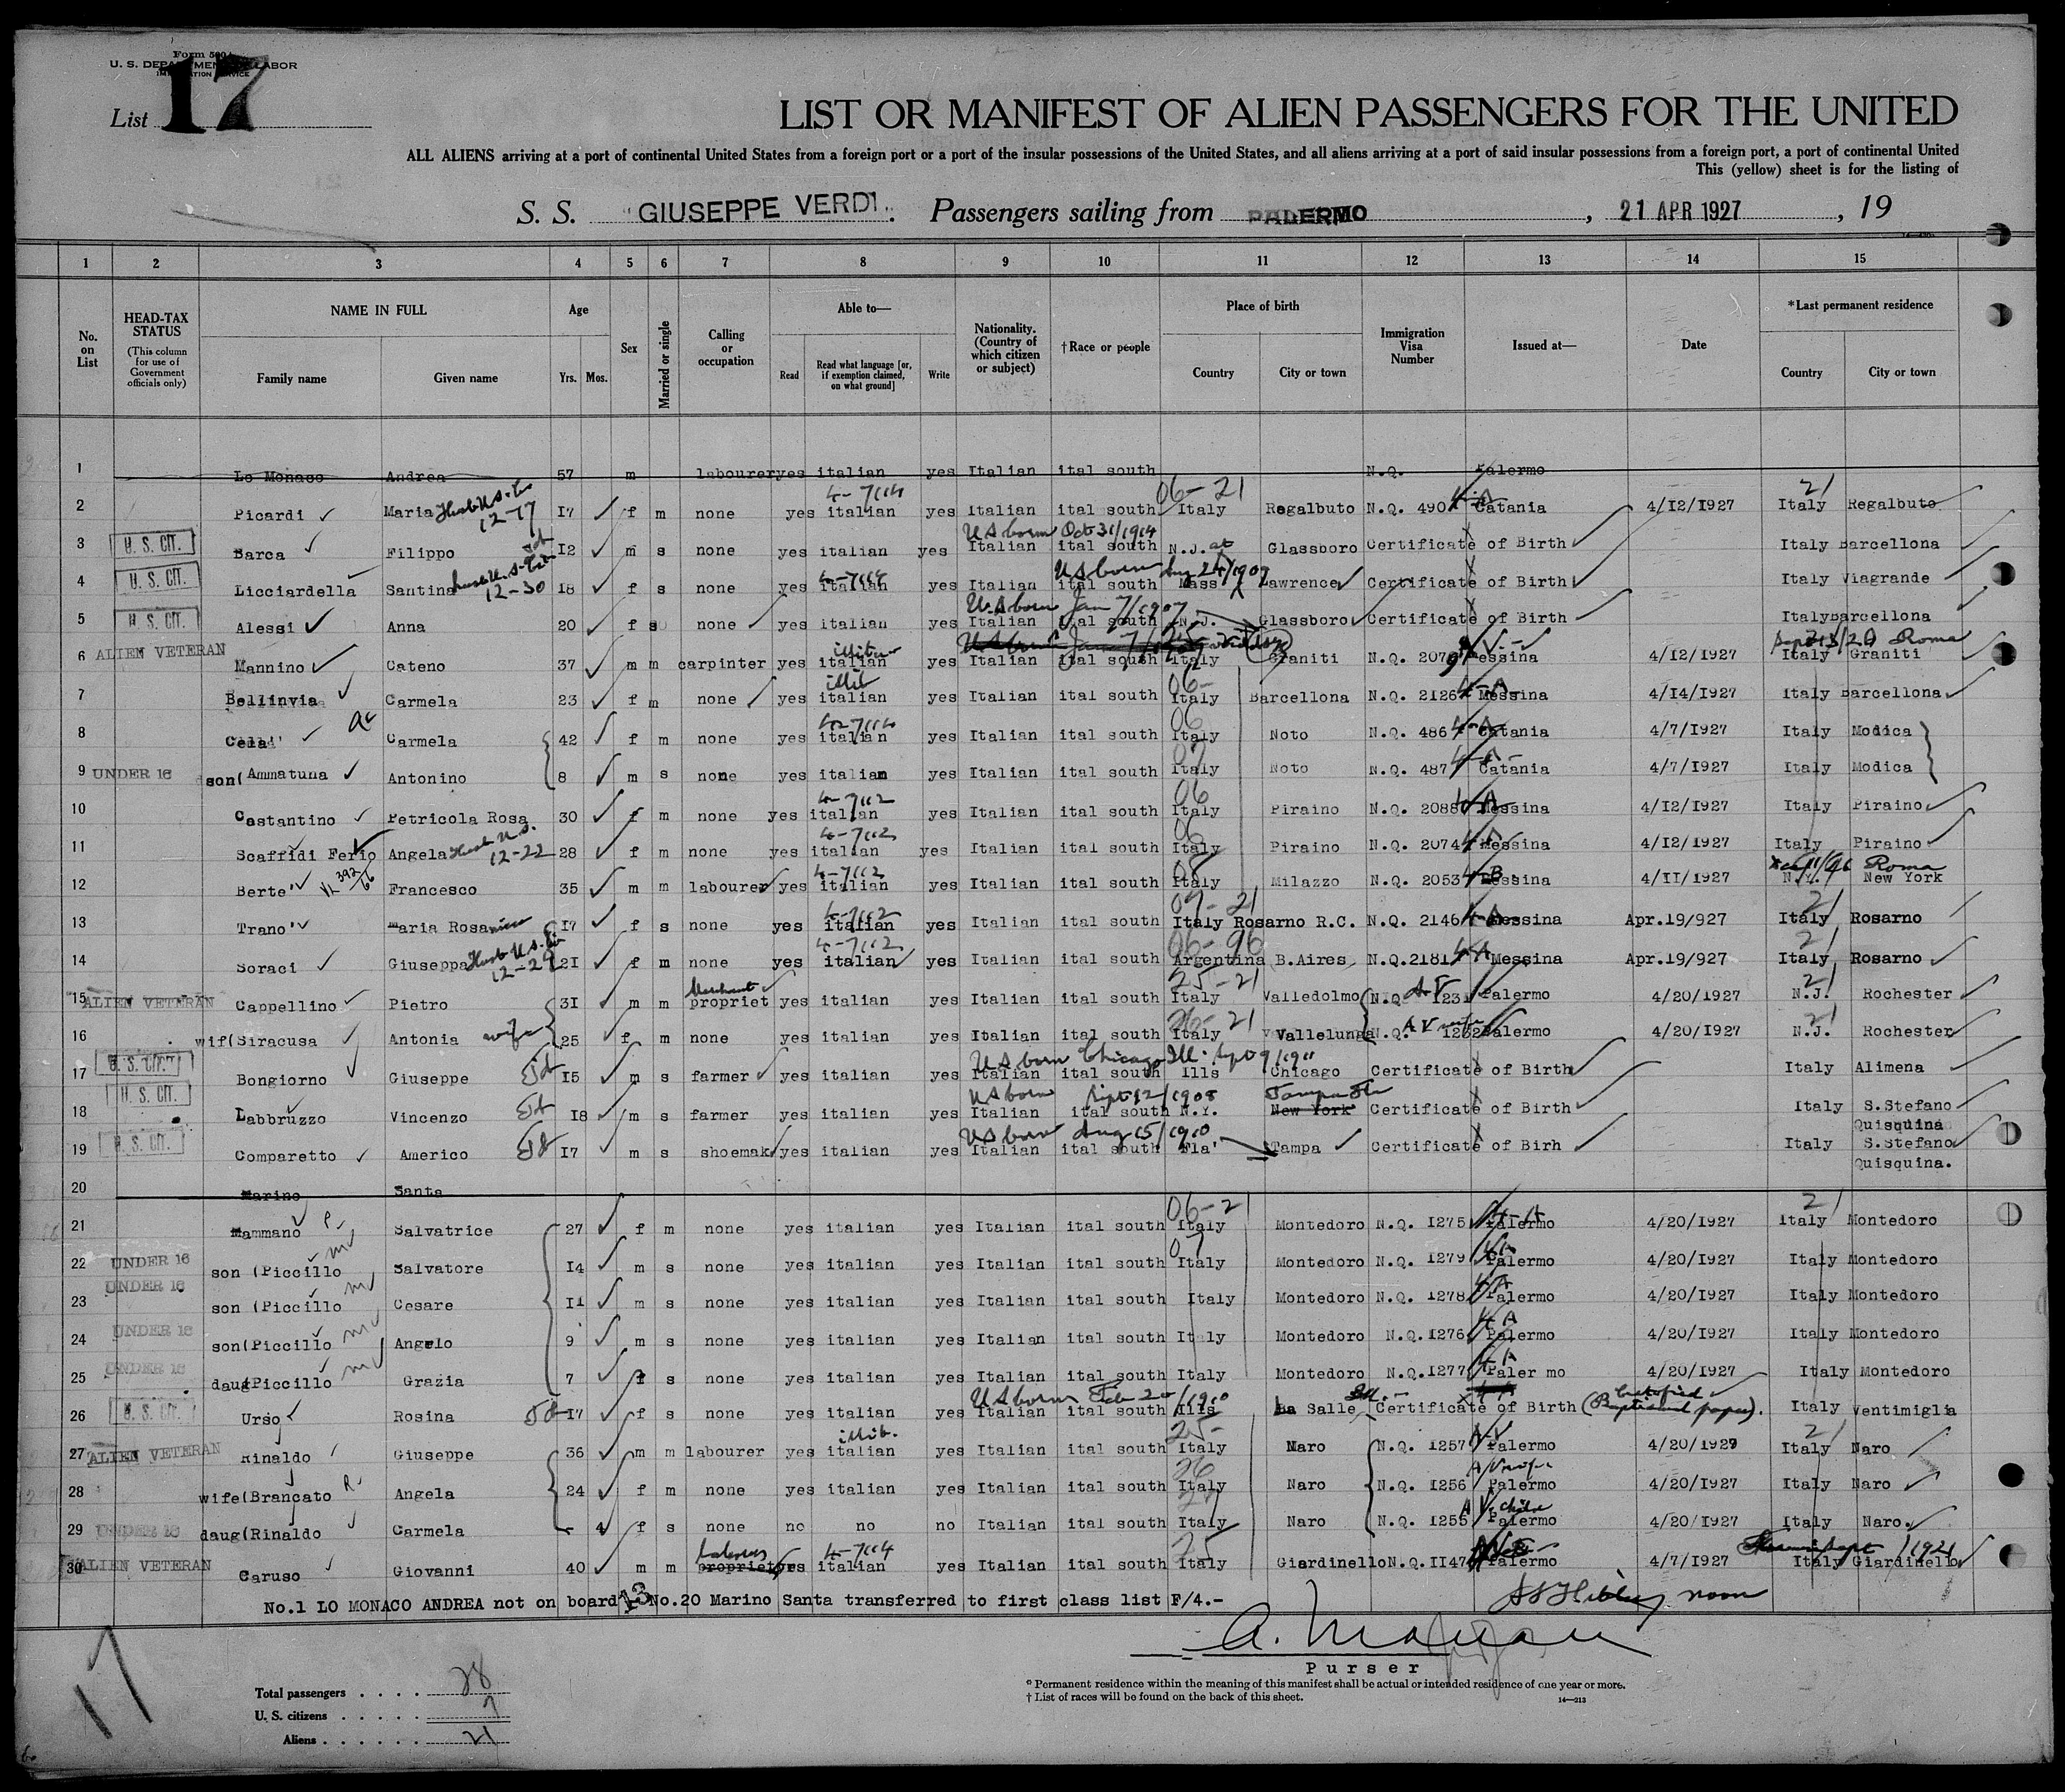 Form 500 A
U. S. DEPARTMENT OF LABOR
IMMIGRATION SERVICE
List 17
LIST OR MANIFEST OF ALIEN PASSENGERS FOR THE UNITED
ALL ALIENS arriving at a port of continental United States from a foreign port or a port of the insular possessions of the United States, and all aliens arriving at a port of said insular possessions from a foreign port, a port of continental United
This (yellow) sheet is for the listing of
S. S. "GIUSEPPE VERDI" Passengers sailing from PALERMO, 21 APR 1927, 19
1 2 3 4 5 6 7 8 9 10 11 12 13 14 15
No. on List
HEAD-TAX STATUS (This column for use of Government officials only)
NAME IN FULL Family name Given name
Age Yrs. Mos.
Sex
Married or single
Calling or occupation
Able to— Read Read what language [or, if exemption claimed, on what ground] Write
Nationality. (Country of which citizen or subject)
†Race or people
Place of birth Country City or town
Immigration Visa Number
Issued at—
Date
*Last permanent residence Country City or town
1 Lo Monaco Andrea 57 m labourer yes italian yes Italian ital south N.Q. Palermo
4-7114 06-21 21
2 Picardi Maria 12-17 17 f m none yes italian yes italian ital south Italy Regalbuto N.Q. 490 Catania 4/12/1927 Italy Regalbuto
US born Oct 31/1914
3 U. S. CIT. Barca Filippo 12 m s none yes italian yes Italian ital south N.J. Glassboro Certificate of Birth Italy Barcellona
US born Aug 24/1909
4 U. S. CIT. Licciardella Santina 12-30 18 f s none yes italian yes Italian ital south Mass Lawrence Certificate of Birth Italy Viagrande
US born Jan 7/1907
5 U. S. CIT. Alessi Anna 20 f s none yes italian yes Italian ital south N.J. Glassboro Certificate of Birth Italy Barcellona
6 ALIEN VETERAN Mannino Cateno 37 m m carpinter yes italian yes Italian ital south Italy Graniti N.Q. 2079 Messina 4/12/1927 Italy Graniti
illit 06-
7 Bellinvia Carmela 23 f m none yes italian yes Italian ital south Italy Barcellona N.Q. 2126 Messina 4/14/1927 Italy Barcellona
06
8 Cela' Carmela 42 f m none yes italian yes Italian ital south Italy Noto N.Q. 486 Catania 4/7/1927 Italy Modica
07
9 UNDER 16 son( Ammatuna Antonino 8 m s none yes italian yes Italian ital south Italy Noto N.Q. 487 Catania 4/7/1927 Italy Modica
4-7112 06
10 Costantino Petricola Rosa 30 f m none yes italian yes Italian ital south Italy Piraino N.Q. 2088 Messina 4/12/1927 Italy Piraino
4-7112 06
11 Scaffidi Ferio Angela 12-22 28 f m none yes italian yes Italian ital south Italy Piraino N.Q. 2074 Messina 4/12/1927 Italy Piraino
4-7112 Roma
12 Berte' Francesco 35 m m labourer yes italian yes Italian ital south Italy Milazzo N.Q. 2053 Messina 4/11/1927 N.Y. New York
4-7112 07-21 21
13 Trano' Maria Rosa 17 f s none yes italian yes Italian ital south Italy Rosarno R.C. N.Q. 2146 Messina Apr.19/927 Italy Rosarno
4-7112 06-96 21
14 Soraci Giuseppa 12-29 21 f m none yes italian yes Italian ital south Argentina B.Aires N.Q.2181 Messina Apr.19/927 Italy Rosarno
Merchant 25-21 21
15 ALIEN VETERAN Cappellino Pietro 31 m m propriet yes italian yes Italian ital south Italy Valledolmo N.Q. 1231 Palermo 4/20/1927 N.J. Rochester
26-21 21
16 wif(Siracusa Antonia wife 25 f m none yes italian yes Italian ital south Italy Vallelunga N.Q. 1232 Palermo 4/20/1927 N.J. Rochester
US born Chicago Ill. Sept 9/1911
17 U. S. CIT. Bongiorno Giuseppe 15 m s farmer yes italian yes Italian ital south Ills Chicago Certificate of Birth Italy Alimena
US born Sept 12/1908 Tampa Fla
18 U. S. CIT. Labbruzzo Vincenzo 18 m s farmer yes italian yes Italian ital south N.Y. New York Certificate of Birth Italy S.Stefano Quisquina
US born Aug 15/1910
19 U. S. CIT. Comparetto Americo 17 m s shoemak yes italian yes Italian ital south Fla' Tampa Certificate of Birh Italy S.Stefano Quisquina.
20 Marino Santa
06-21 21
21 Mammano Salvatrice 27 f m none yes italian yes Italian ital south Italy Montedoro N.Q. 1275 Palermo 4/20/1927 Italy Montedoro
07
22 UNDER 16 son (Piccillo Salvatore 14 m s none yes italian yes Italian ital south Italy Montedoro N.Q. 1279 Palermo 4/20/1927 Italy Montedoro
23 UNDER 16 son (Piccillo Cesare 11 m s none yes italian yes Italian ital south Italy Montedoro N.Q. 1278 Palermo 4/20/1927 Italy Montedoro
24 UNDER 16 son(Piccillo Angelo 9 m s none yes italian yes Italian ital south Italy Montedoro N.Q.1276 Palermo 4/20/1927 Italy Montedoro
25 UNDER 16 daug(Piccillo Grazia 7 f s none yes italian yes Italian ital south Italy Montedoro N.Q.1277 Paler mo 4/20/1927 Italy Montedoro
US born Feb 20/1910
26 U. S. CIT. Urso Rosina 17 f s none yes italian yes Italian ital south Ills La Salle Certificate of Birth (Baptismal paper). Italy Ventimiglia
illit. 25- 21
27 ALIEN VETERAN Rinaldo Giuseppe 36 m m labourer yes italian yes Italian ital south Italy Naro N.Q. 1257 Palermo 4/20/1927 Italy Naro
26 AV wife
28 wife(Brancato Angela 24 f m none yes italian yes Italian ital south Italy Naro N.Q. 1256 Palermo 4/20/1927 Italy Naro
29 UNDER 16 daug(Rinaldo Carmela - 4 f s none no no no Italian ital south Italy Naro N.Q. 1255 Palermo 4/20/1927 Italy Naro.
4-7114 25
30 ALIEN VETERAN Caruso Giovanni 40 m m propriet yes italian yes Italian ital south Italy Giardinello N.Q.1147 Palermo 4/7/1927 Italy Giardinello
No.1 LO MONACO ANDREA not on board No.20 Marino Santa transferred to first class list F/4.-
Purser
17
Total passengers 28
U. S. citizens 7
Aliens 21
* Permanent residence within the meaning of this manifest shall be actual or intended residence of one year or more.
† List of races will be found on the back of this sheet.
14—213